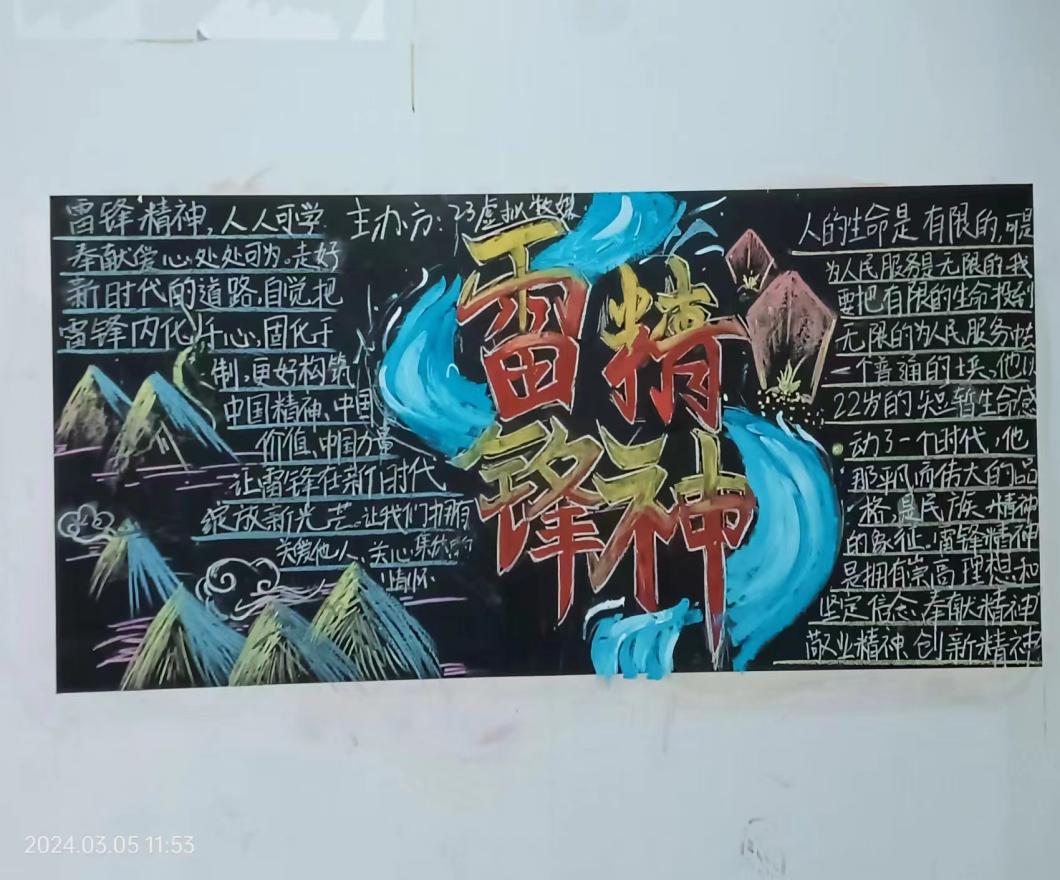 雷锋精神,人人可学
奉献爱心,处处可为。走好
新时代的道路,自觉把
雷锋内化于心,固化于
制,更好构筑
中国精神、中国
价值、中国力量
让雷锋在新时代
绽放新光芒。让我们拥有
关爱他人、关心集体的
情怀.
主办方:23虚拟数媒
雷锋
精神
人的生命是有限的,可是
为人民服务是无限的,我
要把有限的生命投到
无限的为人民服务中去
一个普通的士兵,他以
22岁的短暂生命感
动了一个时代,他
那平凡而伟大的品
格,是民族精神
的象征.雷锋精神
是拥有崇高理想和
坚定信念、奉献精神
敬业精神、创新精神
2024.03.05 11:53